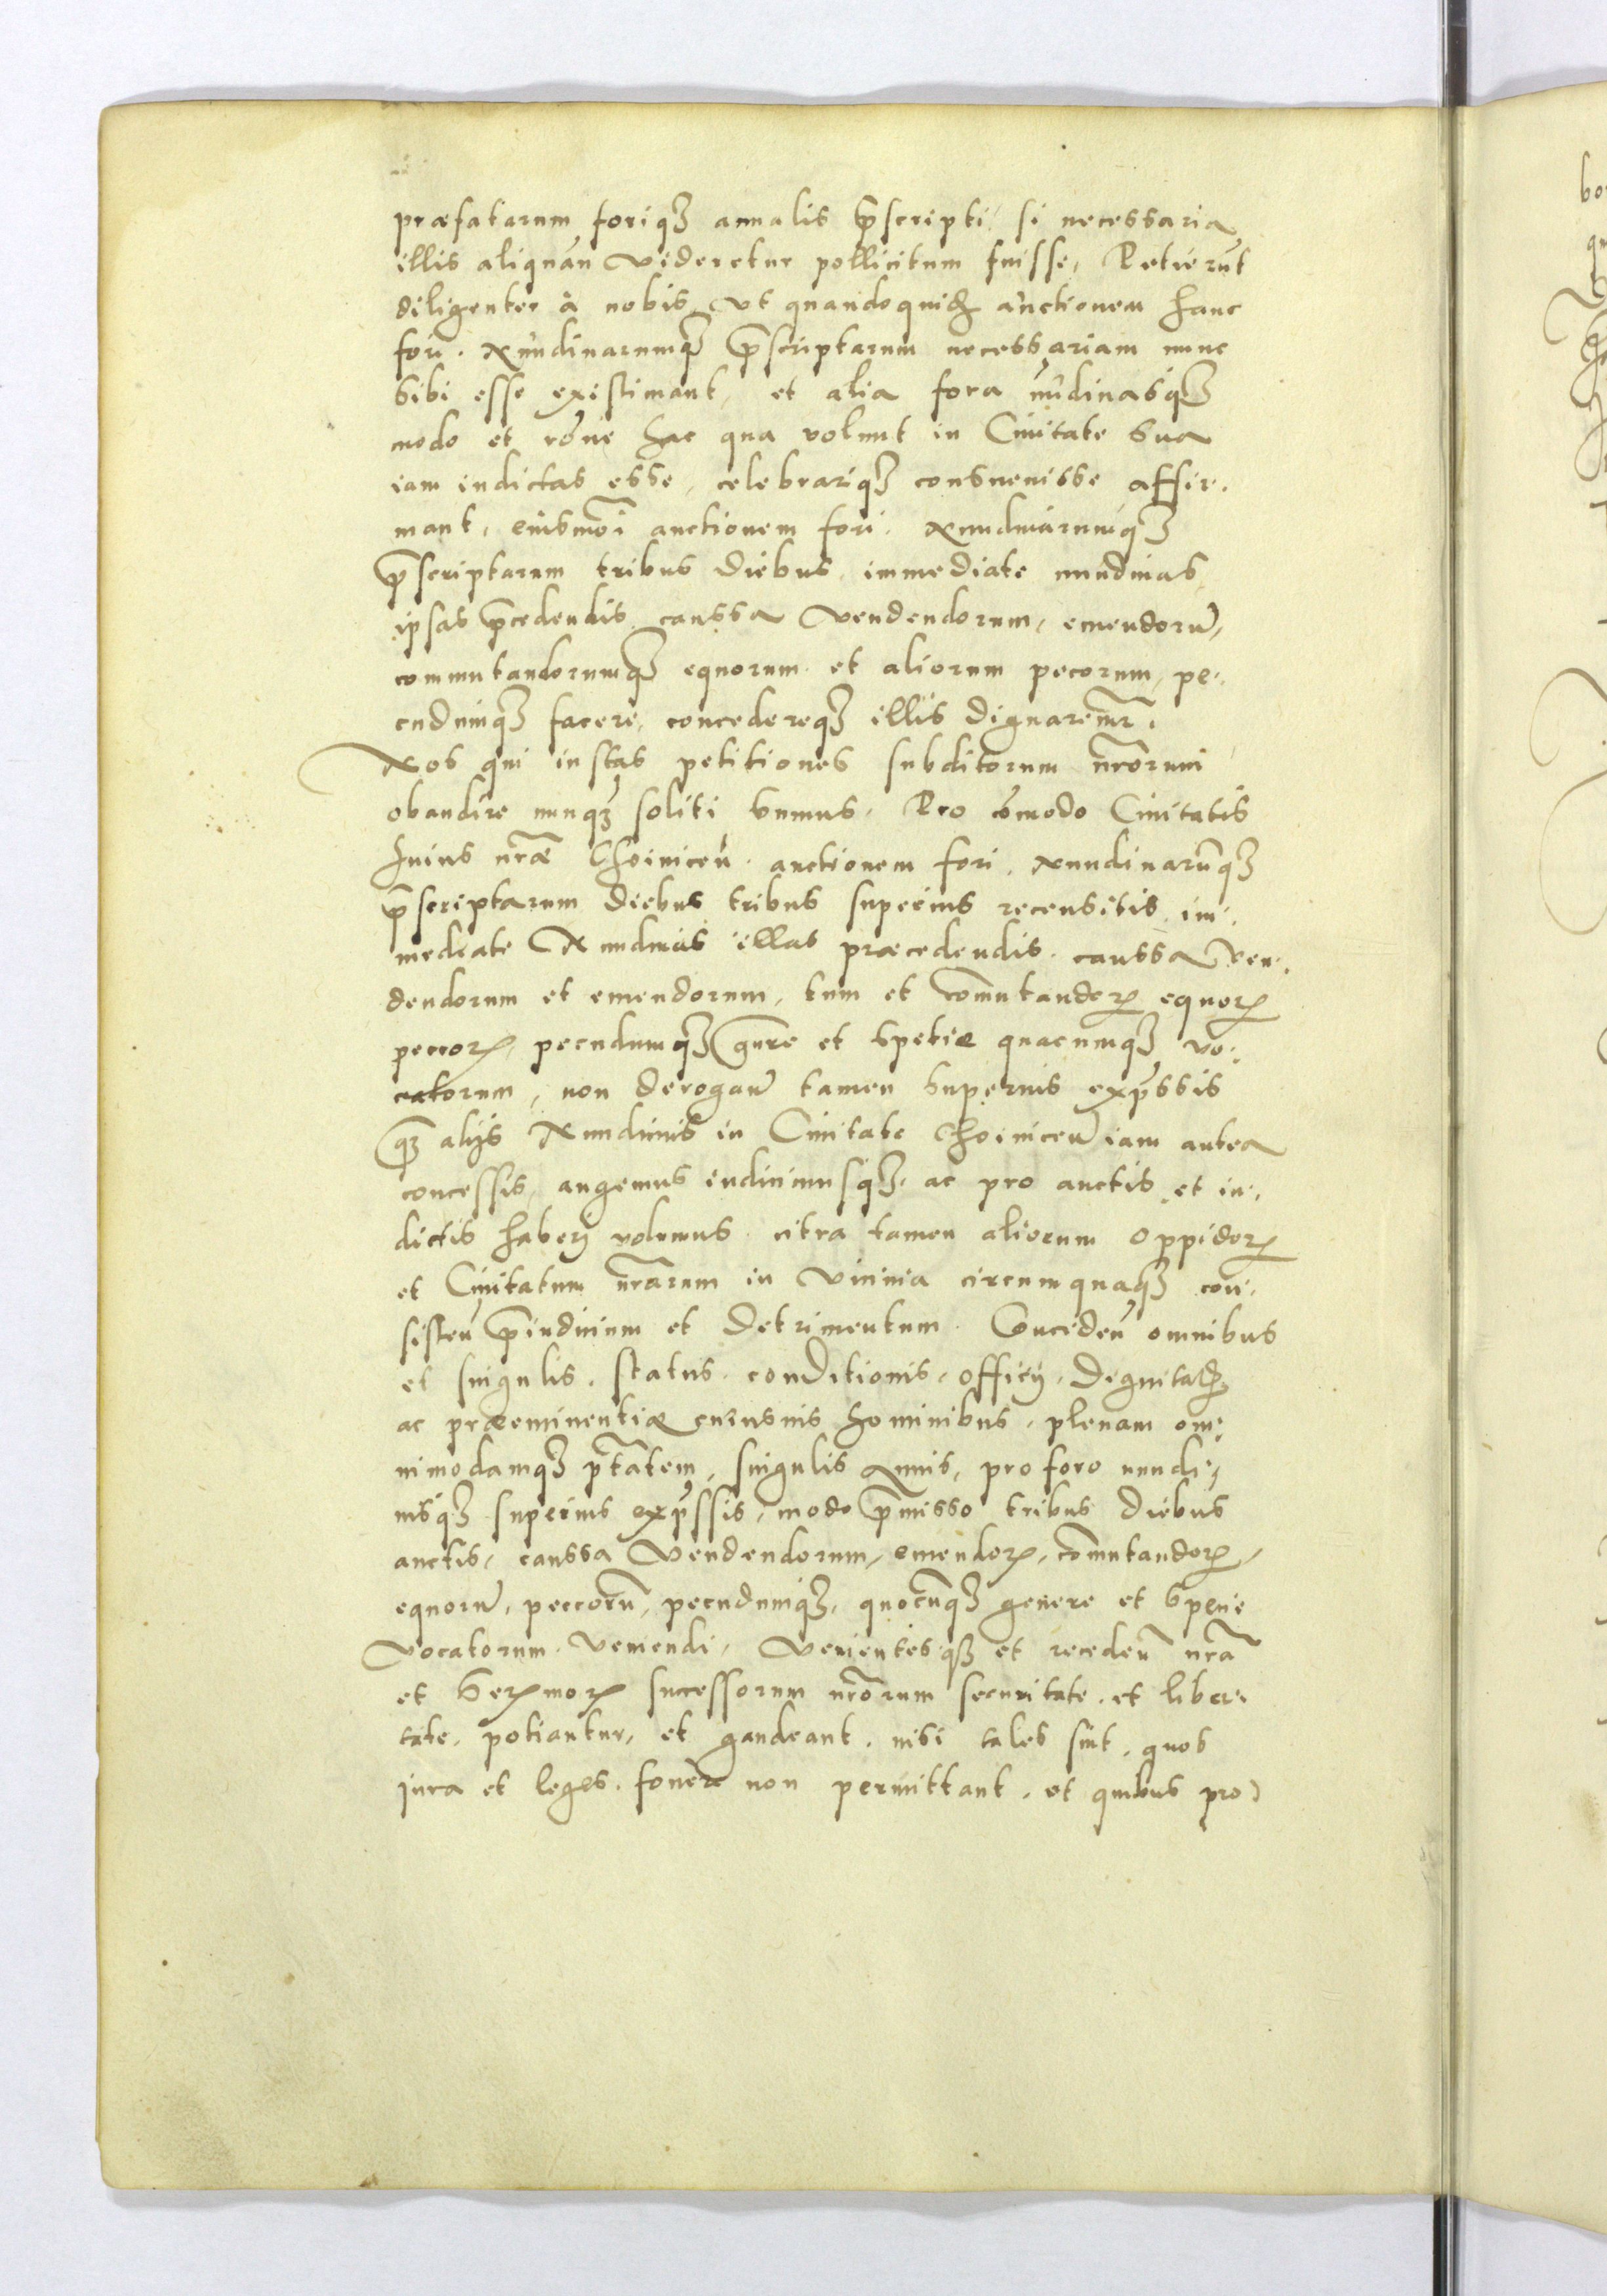 præfatarum foriq₃ annalis p̄scripti, si necessaria
illis aliquan̄ videretur pollicitum fuisse, Petierūt
diligenter à nobis, vt quandoquid₃ auctionem hanc
fori, Nundinarumq₃ p̄scriptarum necessariam nunc
sibi esse existimant, et alia fora nūdinasq₃
modo et rōne hac qua volunt in Ciuitate sua
iam indictas esse, celebrariq₃ consueuisse affir-
mant, eiusmōi auctionem fori, Nundinarumq₃
p̄scriptarum tribus diebus immediate nundinas
ipsas p̄cedendis caussa vendendorum, emendorū,
commutandorumq₃ equorum et aliorum pecorum, pe-
cudumq₃ facere, concedereq₃ illis dignaremr̄.
Nos qui iustas petitiones subditorum nr̄orum
obaudire nunq₃ soliti sumus, Pro cōmodo Ciuitatis
huius nr̄æ Choiniceń. auctionem fori, Nundinarūq₃
p̄scriptarum diebus tribus superius recensitis im-
mediate Nundinas illas præcedendis, caussa ven-
dendorum et emendorum, tum et com̄utandoꝝ equoꝝ
peccoꝝ, pecudumq₃ gn̄re et spetie quacumq₃ vo-
catorum, non derogan̄ tamen superius exp̄ssis
q₃ alijs Nundinis in Ciuitate Choiniceń iam antea
concessis, augemus indicimusq₃, ac pro auctis et in-
dictis haberj volumus, citra tamen aliorum oppidoꝝ
et Ciuitatum nr̄arum in vicinia circumquaq₃ con-
sisten̄ p̄iudicium et detrimentum. Conceden̄ omnibus
et singulis, status, conditionis, officij, dignitatꝭ
ac præeminentiæ cuiusuis hominibus, plenam om-
nimodamq₃ p̄tatem, singulis annis, pro foro nundi-
nisq₃ superius exp̄ssis, modo p̄misso tribus diebus
auctis, caussa vendendorum, emendoꝝ, com̄utandoꝝ,
equorū, peccorū, pecudumq₃, quocūq₃ genere et specie
vocatorum veniendi, venientesq₃ et receden̄ nr̄a
et Serꝫmoꝝ successorum nr̄orum securitate, et liber-
tate, potiantur, et gaudeant, nisi tales sint, quos
jura et leges fouere non permittant, et quibus pro